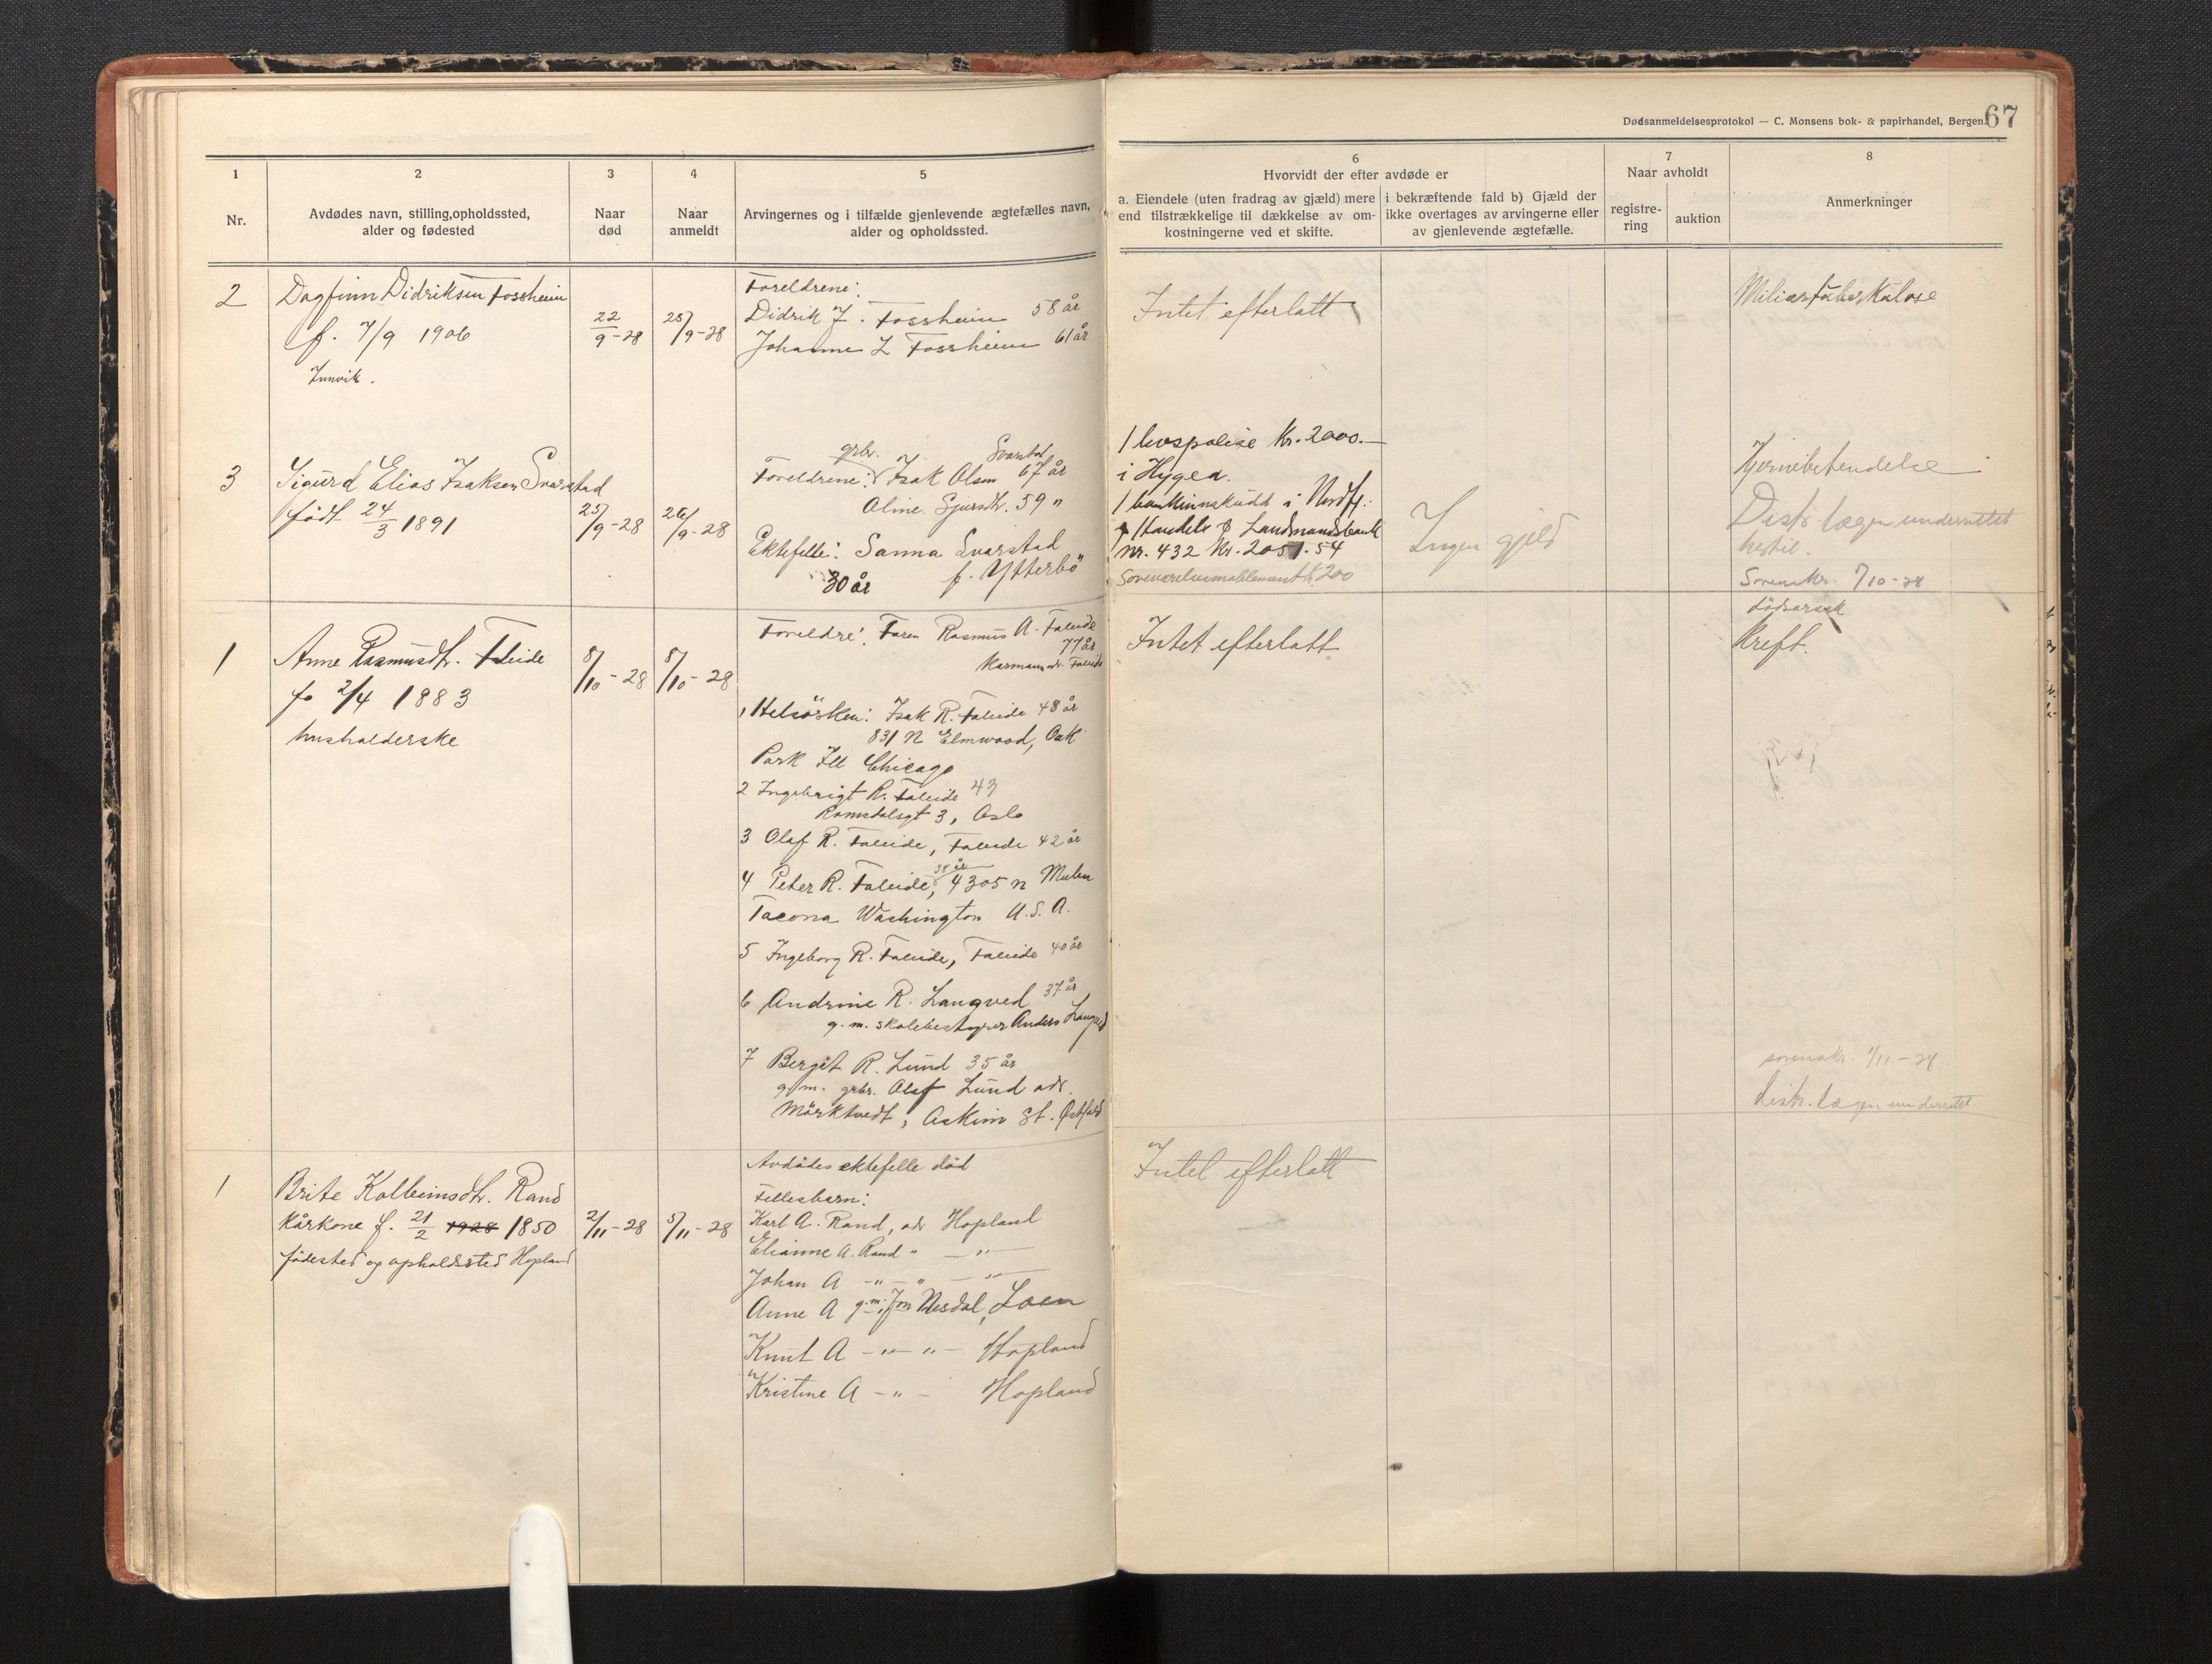 Dødsanmeldelsesprotokol — C. Monsens bok- & papirhandel, Bergen.
67
1
Nr.
2
Avdødes navn, stilling, opholdssted,
alder og fødested
3
Naar
død
4
Naar
anmeldt
5
Arvingernes og i tilfælde gjenlevende ægtefælles navn,
alder og opholdssted.
6
Hvorvidt der efter avdøde er
a. Eiendele (uten fradrag av gjæld) mere
end tilstrækkelige til dækkelse av om-
kostningerne ved et skifte.
i bekræftende fald b) Gjæld der
ikke overtages av arvingerne eller
av gjenlevende ægtefælle.
7
Naar avholdt
registre-
ring
auktion
8
Anmerkninger
2
Dagfinn Didriksen Fossheim
f. 7/9 1906
Innvik.
22/9-28
25/9-28
Foreldrene:
Didrik J. Fossheim 58 år
Johanne L Fossheim 61 år
Intet efterlatt
Miliærtuberkulose
3
Sigurd Elias Isaksen Svarstad
født 24/3 1891
25/9-28
26/9-28
grbr. Svarstad
Foreldrene: Isak Olsen 67 år
Oline Sjursdtr. 59 "
Ektefelle: Sanna Svarstad
30 år f. Ytterbö
1 livspolise Kr. 2000.—
i Hygea.
1 bankinnskudd i Nordfj:
Handels & Landmandsbank
Nr. 432 Kr. 2051.54
200
Ingen gjeld
Hjernebetendelse
Distr. lægen underrettet
Sorenskr. 7/10-28
1
Anne Rasmusdtr. Faleide
f. 2/4 1883
husholderske
8/10-28
8/10-28
Foreldre: Faren Rasmus A. Faleide
77 år
Faleide
1 Helsösken: Isak R. Faleide 48 år
831 N Elmwood, Oak
Park Ill Chicago
2 Ingebrigt R. Faleide 43
Romsdalsgt 3, Oslo
3 Olaf R. Faleide, Faleide 42 år
38 år
4 Peter R. Faleide, 4305 N
Tacoma Washington U.S.A.
5 Ingeborg R. Faleide, Faleide 40 år
6 Andrine R. Langved 37 år
g.m. skolebestyrer Anders Langved
7 Bergit R. Lund 35 år
g.m. grbr. Olaf Lund adr.
Mörktvedt, Askim St. Østfold
Intet efterlatt
dödsarsak
Kreft.
sorenskr. 7/11-28
distr. lægen underrettet
1
Brite Kolbeinsdtr. Rand
Kårkone f. 21/2 1928 1850
födested og opholdssted Hopland
2/11-28
5/11-28
Avdødes ektefelle död
Fellesbarn:
Karl A. Rand, adr Hopland
Elianne A. Rand " — " —
Johan A — " — " — " —
Anne A g.m. Jon Nesdal, Loen
Knut A — " — " — Hopland
Kristine A — " — Hopland
Intet efterlatt